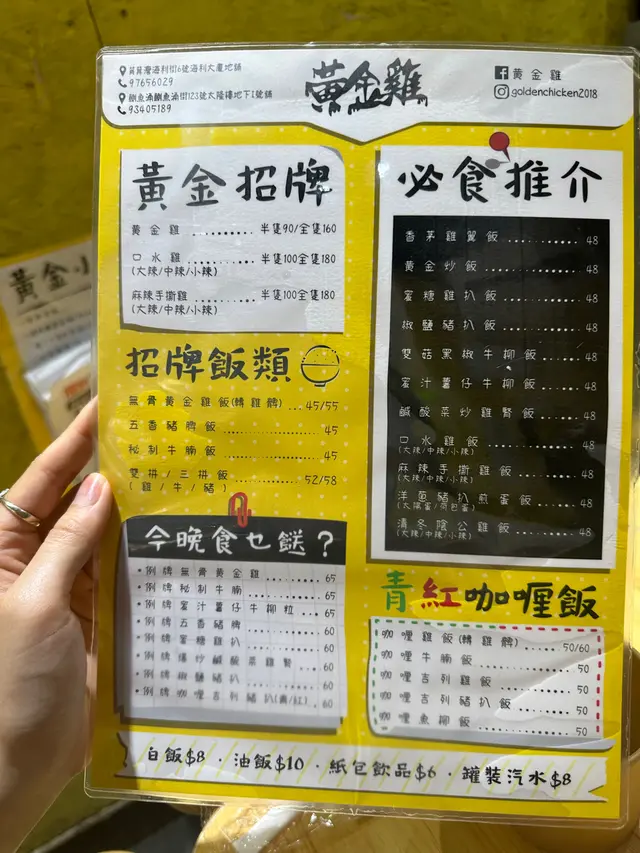 筲箕灣海利街6號海利大廈地舖
97656029
鰂魚涌鰂魚涌街123號太隆樓地下1號舖
93405189
黃金雞
黃金雞
goldenchicken2018
黃金招牌
黃金雞 .......... 半隻90/全隻160
口水雞 .......... 半隻100全隻180
(大辣/中辣/小辣)
麻辣手撕雞 .......... 半隻100全隻180
(大辣/中辣/小辣)
招牌飯類
無骨黃金雞飯(轉雞髀) ... 45/55
五香豬腩飯 .......... 45
秘制牛腩飯 .......... 45
雙拼/三拼飯 .......... 52/58
(雞/牛/豬)
今晚食乜餸?
•例牌無骨黃金雞 .......... 65
•例牌秘制牛腩 .......... 65
•例牌蜜汁薯仔牛柳粒 ...... 65
•例牌五香豬腩 .......... 60
•例牌蜜糖雞扒 .......... 60
•例牌爆炒鹹酸菜雞腎 .. 60
•例牌椒鹽豬扒 .......... 60
•例牌咖喱吉列豬扒(青/紅) .. 60
必食推介
香茅雞翼飯 .......... 48
黃金炒飯 .......... 48
蜜糖雞扒飯 .......... 48
椒鹽豬扒飯 .......... 48
雙菇黑椒牛柳飯 ..... 48
蜜汁薯仔牛柳飯 ..... 48
鹹酸菜炒雞腎飯 ..... 48
口水雞飯 .......... 48
(大辣/中辣/小辣)
麻辣手撕雞飯 .......... 48
(大辣/中辣/小辣)
洋蔥豬扒煎蛋飯 ..... 48
(太陽蛋/荷包蛋)
清冬陰公雞飯 .......... 48
(大辣/中辣/小辣)
青紅咖喱飯
咖喱雞飯(轉雞髀) ....... 50/60
咖喱牛腩飯 .......... 50
咖喱吉列雞飯 .......... 50
咖喱吉列豬扒飯 .......... 50
咖喱魚柳飯 .......... 50
白飯$8 · 油飯$10 · 紙包飲品$6 · 罐裝汽水$8
黃金小